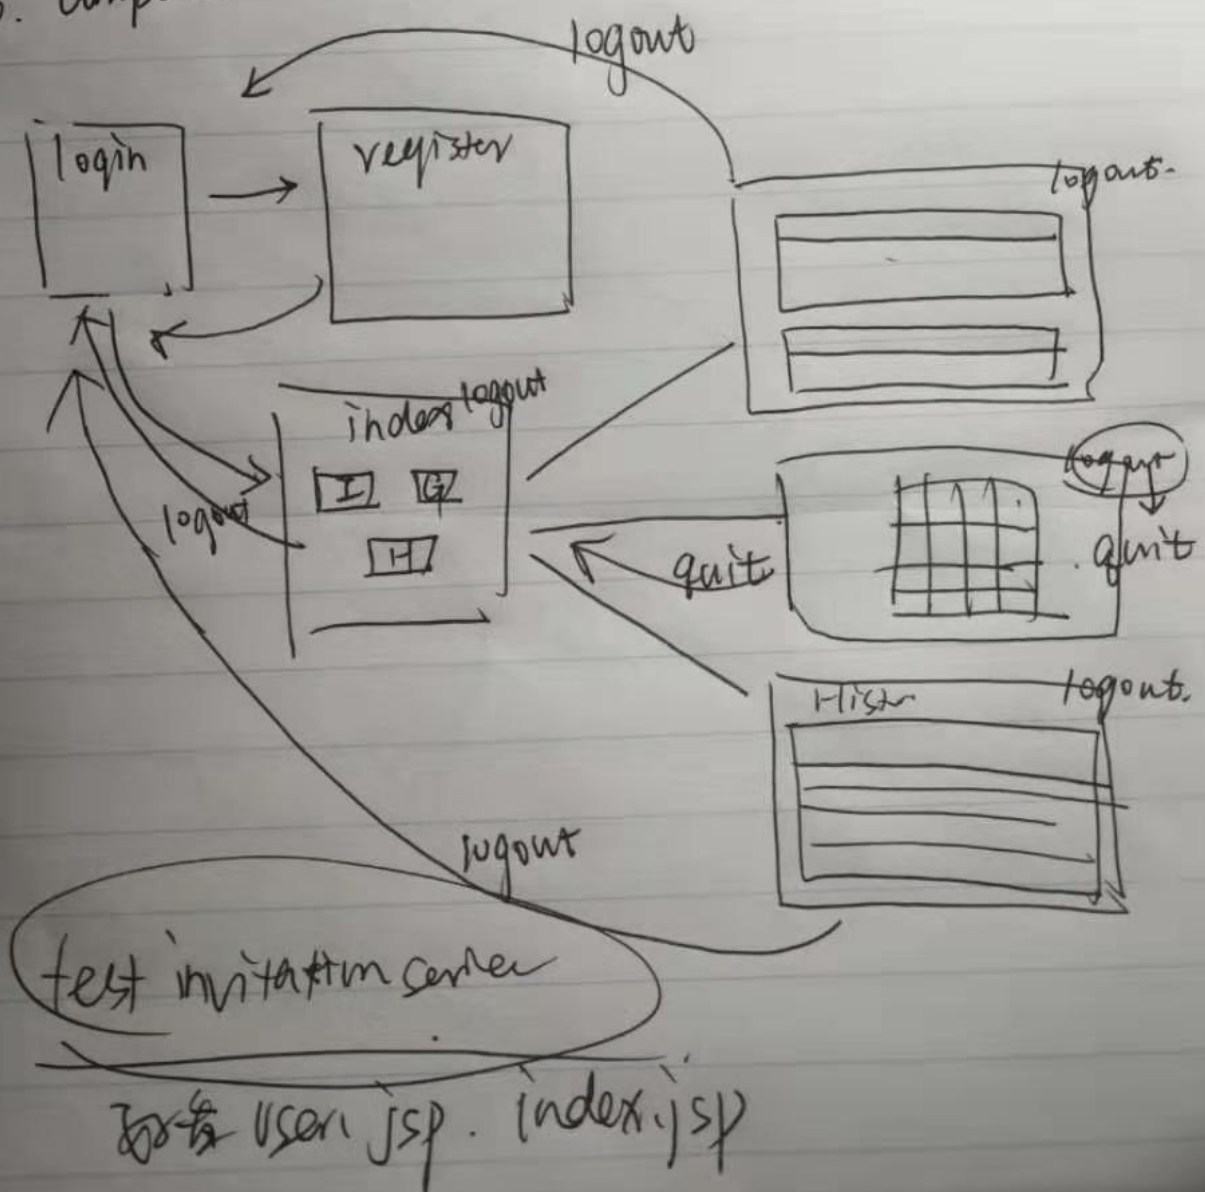 logout
login
register
logout.
index logout
I
G
H
logout
quit
logout
quit
Histr
logout.
logout
test invitation
user.jsp. index.jsp